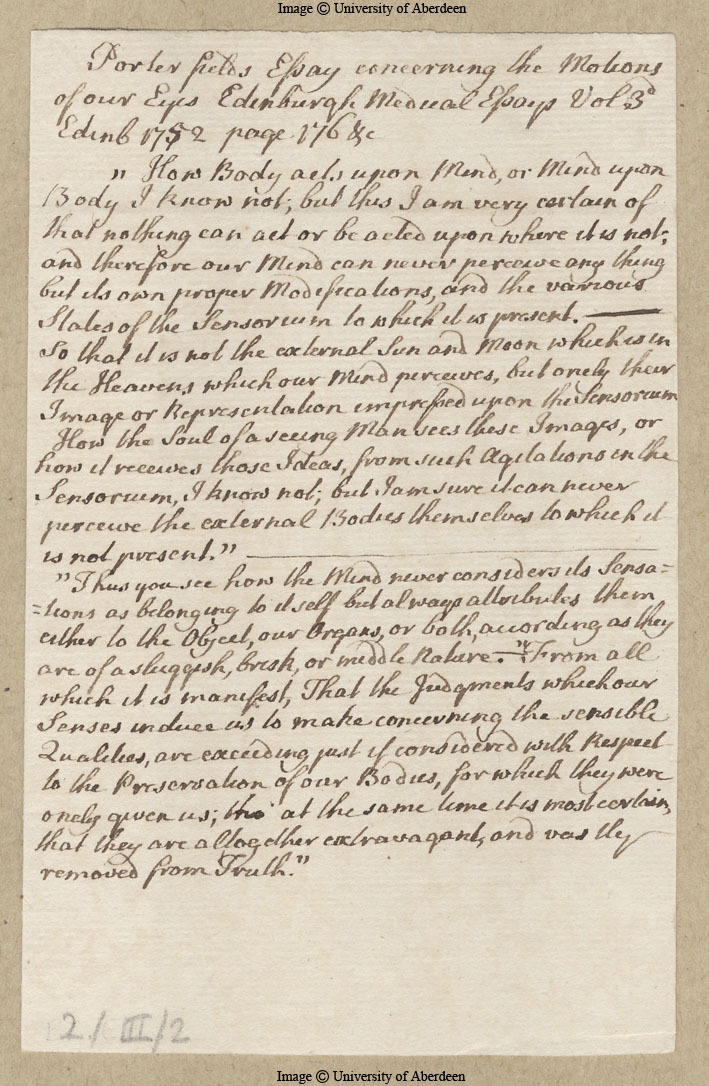 Image © University of Aberdeen
Porterfields Eſsay concerning the Motions
of our Eyes Edinburgh Medical Eſsays Vol 3d
Edinb 1752 page 176 &c
" How Body acts upon Mind, or Mind upon
Body I know not; but this I am very certain of
that nothing can act or be acted upon where it is not;
and therefore our Mind can never perceive any thing
but its own proper Modifications, and the various
States of the Sensorium to which it is present. —
So that it is not the external Sun and Moon which is in
the Heavens which our Mind perceives, but onely their
Image or Representation impreſsed upon the Sensorium
How the Soul of a seeing Man sees these Images, or
how it receives those Ideas, from such Agitations in the
Sensorium, I know not; but I am sure it can never
perceive the external Bodies themselves to which it
is not present." —
"Thus you see how the Mind never considers its Sensa=
=tions as belonging to itself but always attributes them
either to the Object, our Organs, or both, according as they
are of a sluggish, brisk, or middle Nature. —" "From all
which it is manifest, That the Judgments which our
Senses induce us to make concerning the sensible
Qualities, are exceeding just if considered with Respect
to the Preservation of our Bodies, for which they were
onely given us; tho' at the same time it is most certain,
that they are altogether extravagant, and vastly
removed from Truth."
2/III/2
Image © University of Aberdeen